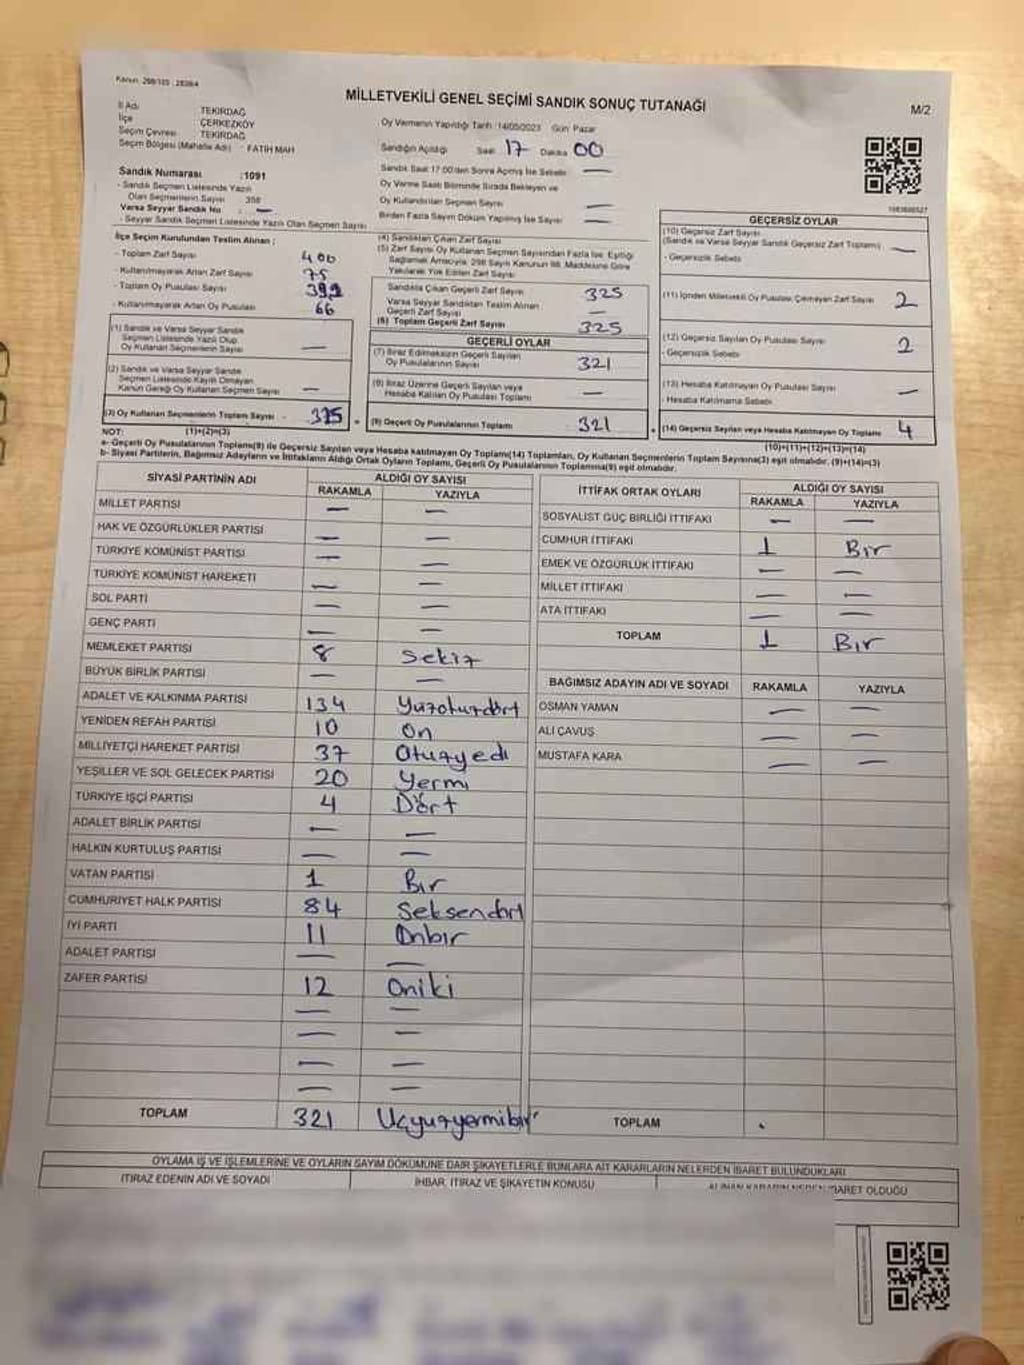 Kanun: 298/105 : 283984
MİLLETVEKİLİ GENEL SEÇİMİ SANDIK SONUÇ TUTANAĞI
M/2
İl Adı TEKİRDAĞ
İlçe ÇERKEZKÖY
Seçim Çevresi TEKİRDAĞ
Seçim Bölgesi (Mahalle Adı) : FATİH MAH
Oy Vermenin Yapıldığı Tarih : 14/05/2023 Gün: Pazar
Sandığın Açıldığı Saat 17 Dakika 00
Sandık Saat 17:00'den Sonra Açılmış İse Sebebi —
Oy Verme Saati Bitiminde Sırada Bekleyen ve
Oy Kullandırılan Seçmen Sayısı —
Birden Fazla Sayım Döküm Yapılmış İse Sayısı —
Sandık Numarası :1091
- Sandık Seçmen Listesinde Yazılı
Olan Seçmenlerin Sayısı
Varsa Seyyar Sandık No : —
- Seyyar Sandık Seçmen Listesinde Yazılı Olan Seçmen Sayısı
İlçe Seçim Kurulundan Teslim Alınan ;
- Toplam Zarf Sayısı 400
- Kullanılmayarak Artan Zarf Sayısı 75
- Toplam Oy Pusulası Sayısı
- Kullanılmayarak Artan Oy Pusulası 66
(1) Sandık ve Varsa Seyyar Sandık
Seçmen Listesinde Yazılı Olup
Oy Kullanan Seçmenlerin Sayısı —
(2) Sandık ve Varsa Seyyar Sandık
Seçmen Listesinde Kayıtlı Olmayan
Kanun Gereği Oy Kullanan Seçmen Sayısı —
(3) Oy Kullanan Seçmenlerin Toplam Sayısı
(1)+(2)=(3)
(4) Sandıktan Çıkan Zarf Sayısı
(5) Zarf Sayısı Oy Kullanan Seçmen Sayısından Fazla İse, Eşitliği
Sağlamak Amacıyla, 298 Sayılı Kanunun 98. Maddesine Göre
Yakılarak Yok Edilen Zarf Sayısı
Sandıkta Çıkan Geçerli Zarf Sayısı 325
Varsa Seyyar Sandıktan Teslim Alınan
Geçerli Zarf Sayısı —
(6) Toplam Geçerli Zarf Sayısı 325
GEÇERLİ OYLAR
(7) İtiraz Edilmeksizin Geçerli Sayılan
Oy Pusulalarının Sayısı 321
(8) İtiraz Üzerine Geçerli Sayılan veya
Hesaba Katılan Oy Pusulası Toplamı —
(9) Geçerli Oy Pusulalarının Toplamı 321
GEÇERSİZ OYLAR
(10) Geçersiz Zarf Sayısı
(Sandık ve Varsa Seyyar Sandık Geçersiz Zarf Toplamı) —
- Geçersizlik Sebebi
(11) İçinden Milletvekili Oy Pusulası Çıkmayan Zarf Sayısı 2
(12) Geçersiz Sayılan Oy Pusulası Sayısı 2
- Geçersizlik Sebebi
(13) Hesaba Katılmayan Oy Pusulası Sayısı —
- Hesaba Katılmama Sebebi
(14) Geçersiz Sayılan veya Hesaba Katılmayan Oy Toplamı 4
(10)+(11)+(12)+(13)=(14)
NOT:
a- Geçerli Oy Pusulalarının Toplamı(9) ile Geçersiz Sayılan veya Hesaba Katılmayan Oy Toplamı(14) Toplamları, Oy Kullanan Seçmenlerin Toplam Sayısına(3) eşit olmalıdır. (9)+(14)=(3)
b- Siyasi Partilerin, Bağımsız Adayların ve İttifakların Aldığı Ortak Oyların Toplamı, Geçerli Oy Pusulalarının Toplamına(9) eşit olmalıdır.
SİYASİ PARTİNİN ADI ALDIĞI OY SAYISI
RAKAMLA YAZIYLA
MİLLET PARTİSİ — —
HAK VE ÖZGÜRLÜKLER PARTİSİ — —
TÜRKİYE KOMÜNİST PARTİSİ — —
TÜRKİYE KOMÜNİST HAREKETİ — —
SOL PARTİ — —
GENÇ PARTİ — —
MEMLEKET PARTİSİ 8 Sekiz
BÜYÜK BİRLİK PARTİSİ — —
ADALET VE KALKINMA PARTİSİ 134 Yüzotuzdört
YENİDEN REFAH PARTİSİ 10 On
MİLLİYETÇİ HAREKET PARTİSİ 37 Otuzyedi
YEŞİLLER VE SOL GELECEK PARTİSİ 20 Yermi
TÜRKİYE İŞÇİ PARTİSİ 4 Dört
ADALET BİRLİK PARTİSİ — —
HALKIN KURTULUŞ PARTİSİ — —
VATAN PARTİSİ 1 Bir
CUMHURİYET HALK PARTİSİ 84 Seksendört
İYİ PARTİ 11 Onbir
ADALET PARTİSİ — —
ZAFER PARTİSİ 12 Oniki
— —
— —
— —
— —
TOPLAM 321 Üçyüzyermibir
İTTİFAK ORTAK OYLARI ALDIĞI OY SAYISI
RAKAMLA YAZIYLA
SOSYALİST GÜÇ BİRLİĞİ İTTİFAKI — —
CUMHUR İTTİFAKI 1 Bir
EMEK VE ÖZGÜRLÜK İTTİFAKI — —
MİLLET İTTİFAKI — —
ATA İTTİFAKI — —
TOPLAM 1 Bir
BAĞIMSIZ ADAYIN ADI VE SOYADI RAKAMLA YAZIYLA
OSMAN YAMAN — —
ALİ ÇAVUŞ — —
MUSTAFA KARA — —
TOPLAM
OYLAMA İŞ VE İŞLEMLERİNE VE OYLARIN SAYIM DÖKÜMÜNE DAİR ŞİKAYETLERLE BUNLARA AİT KARARLARIN NELERDEN İBARET BULUNDUKLARI
İTİRAZ EDENİN ADI VE SOYADI İHBAR, İTİRAZ VE ŞİKAYETİN KONUSU ALINAN KARARIN NEDEN İBARET OLDUĞU